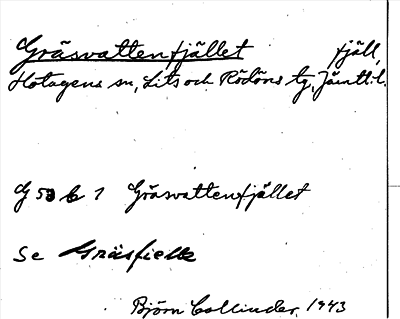 Gräsvattenfjället fjäll,
Hotagens sn, Lits och Rödöns tg, Jämtl. l.
G 53 b 1 Gräsvattenfjället
Se Gräsfielle
Björn Collinder 1943